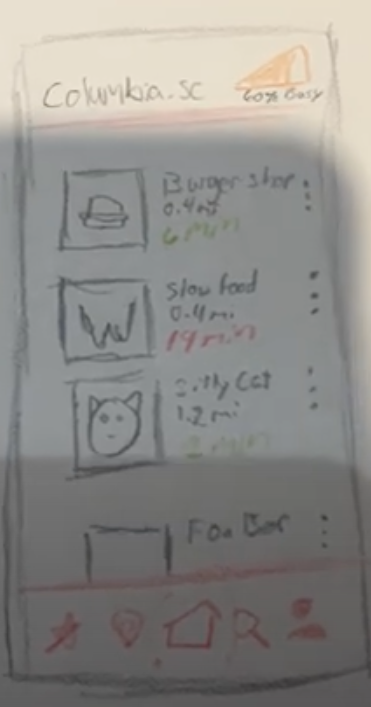 Columbia.sc
60% Busy
Burger shop
0.4 mi
6 min
Slow food
0.4 mi
19 min
Cat
1.2 mi
min
Foo Bar